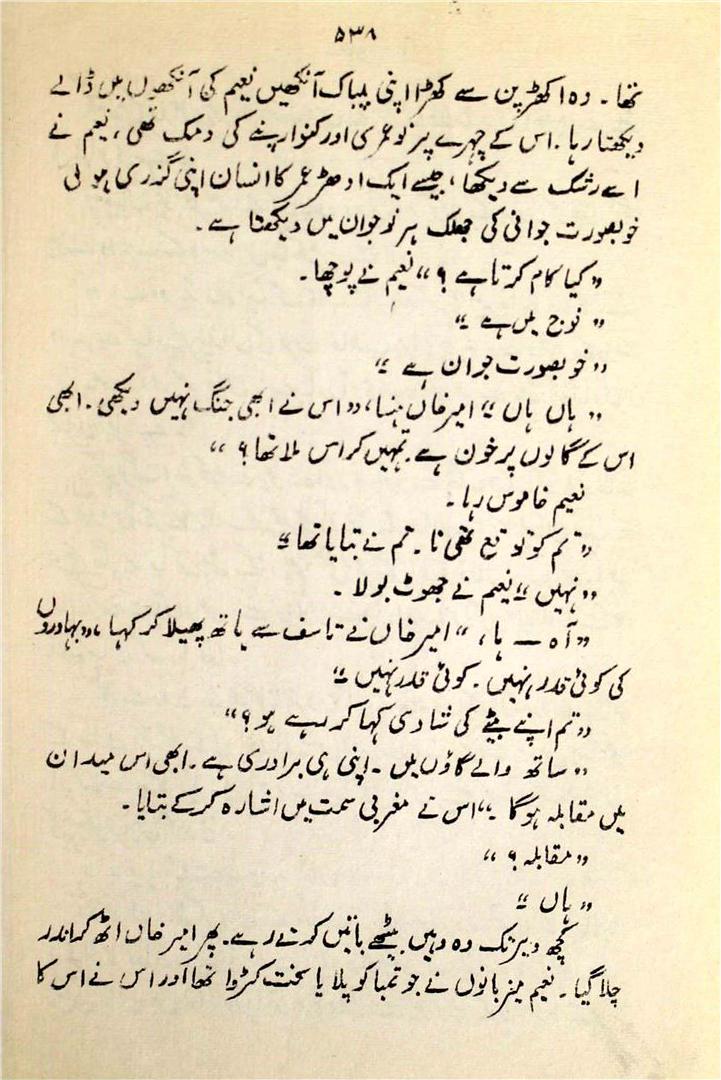 ۵۳۸
تھا۔ وہ اکھڑپن سے کھڑا اپنی بیباک آنکھیں نعیم کی آنکھوں میں ڈالے
دیکھتا رہا۔ اس کے چہرے پر نوعمری اور کنوارپنے کی دمک تھی، نعیم نے
اسے رشک سے دیکھا، جیسے ایک ادھڑ عمر کا انسان اپنی گذری ہوئی
خوبصورت جوانی کی جھلک ہر نوجوان میں دیکھتا ہے۔
"کیا کام کرتا ہے؟" نعیم نے پوچھا۔
"فوج میں ہے"
"خوبصورت جوان ہے"
"ہاں ہاں" امیر خاں ہنسا، "اس نے ابھی جنگ نہیں دیکھی۔ ابھی
اس کے گالوں پر خون ہے۔ تمہیں کراس ملا تھا؟"
نعیم خاموش رہا۔
"تم کو توقع تھی نا۔ تم نے بتایا تھا"
"نہیں" نعیم نے جھوٹ بولا۔
"آہ — ہا،" امیر خاں نے تاسف سے ہاتھ پھیلا کر کہا، "بہادروں
کی کوئی قدر نہیں۔ کوئی قدر نہیں"
"تم اپنے بیٹے کی شادی کہا کر رہے ہو؟"
"ساتھ والے گاؤں میں۔ اپنی ہی برادری ہے۔ ابھی اس میدان
میں مقابلہ ہوگا۔" اس نے مغربی سمت میں اشارہ کر کے بتایا۔
"مقابلہ؟"
"ہاں"
کچھ دیر تک وہ وہیں بیٹھے باتیں کرتے رہے۔ پھر امیر خاں اٹھ کر اندر
چلا گیا۔ نعیم میزبانوں نے جو تمباکو پلایا سخت کڑوا تھا اور اس نے اس کا